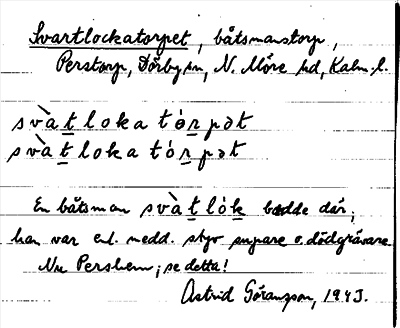 Svartlockatorpet, båtsmanstorp,
Perstorp, Dörby sn, N. Möre hd, Kalm. l.
svàt̲loka tór̲pət
svàt̲loka tór̲pət
En båtsman svàt̲lók̲ bodde där;
han var enl. medd. styv supare o. dödgrävare
Nu Pershem; se detta!
Astrid Göransson, 1943.